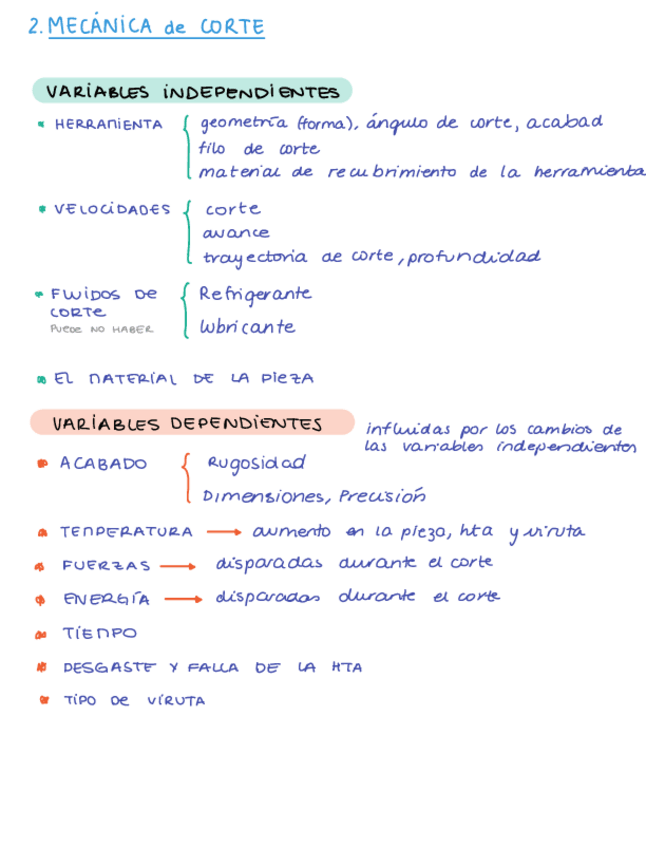 2. MECÁNICA de CORTE
VARIABLES INDEPENDIENTES
HERRAMIENTA { geometría (forma), ángulo de corte, acabad
filo de corte
material de recubrimiento de la herramienta
VELOCIDADES { corte
avance
trayectoria de corte, profundidad
FLUIDOS DE { Refrigerante
CORTE
PUEDE NO HABER lubricante
EL MATERIAL DE LA PIEZA
VARIABLES DEPENDIENTES influidas por los cambios de
las variables independientes
ACABADO { Rugosidad
Dimensiones, Precisión
TEMPERATURA → aumento en la pieza, hta y viruta
FUERZAS → disparadas durante el corte
ENERGÍA → disparadas durante el corte
TIEMPO
DESGASTE Y FALLA DE LA HTA
TIPO DE VIRUTA